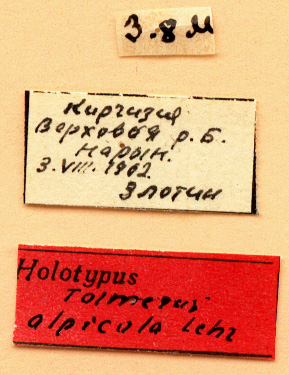 3.8 М
Киргизия
Верховья р. Б.
Нарын.
3.VIII.1962.
Злотин
Holotypus
Tolmerus
alpicola Lehr